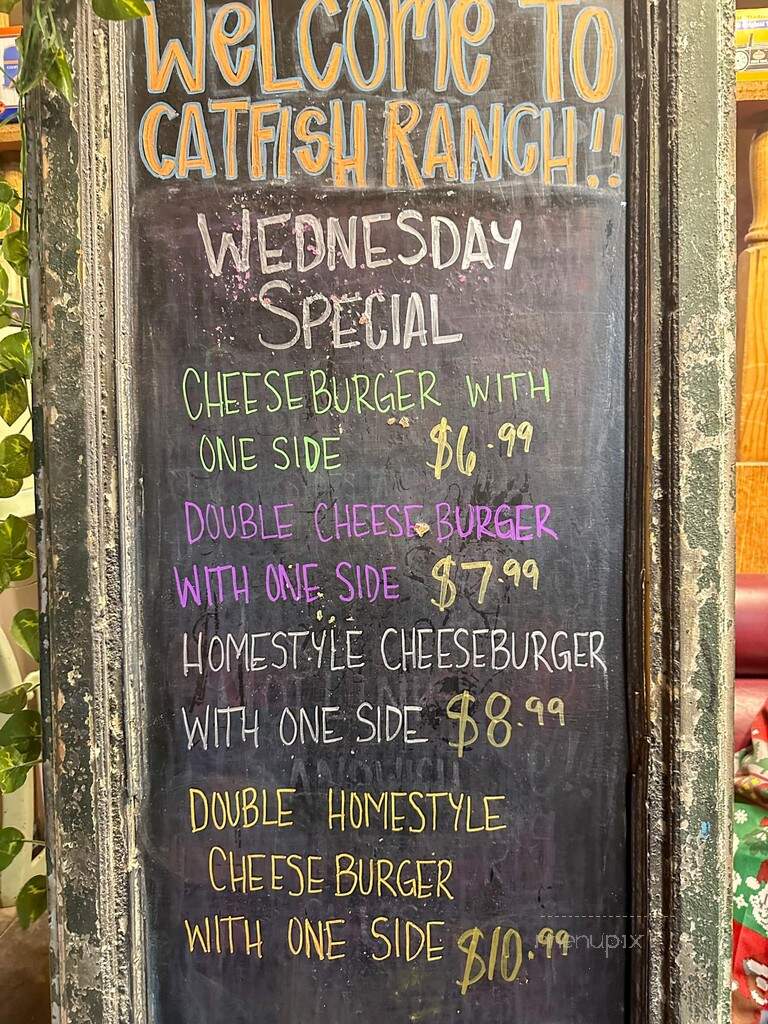 WELCOME TO
CATFISH RANCH!!
WEDNESDAY
SPECIAL
CHEESEBURGER WITH
ONE SIDE $6.99
DOUBLE CHEESE BURGER
WITH ONE SIDE $7.99
HOMESTYLE CHEESEBURGER
WITH ONE SIDE $8.99
DOUBLE HOMESTYLE
CHEESE BURGER
WITH ONE SIDE $10.99
menupix